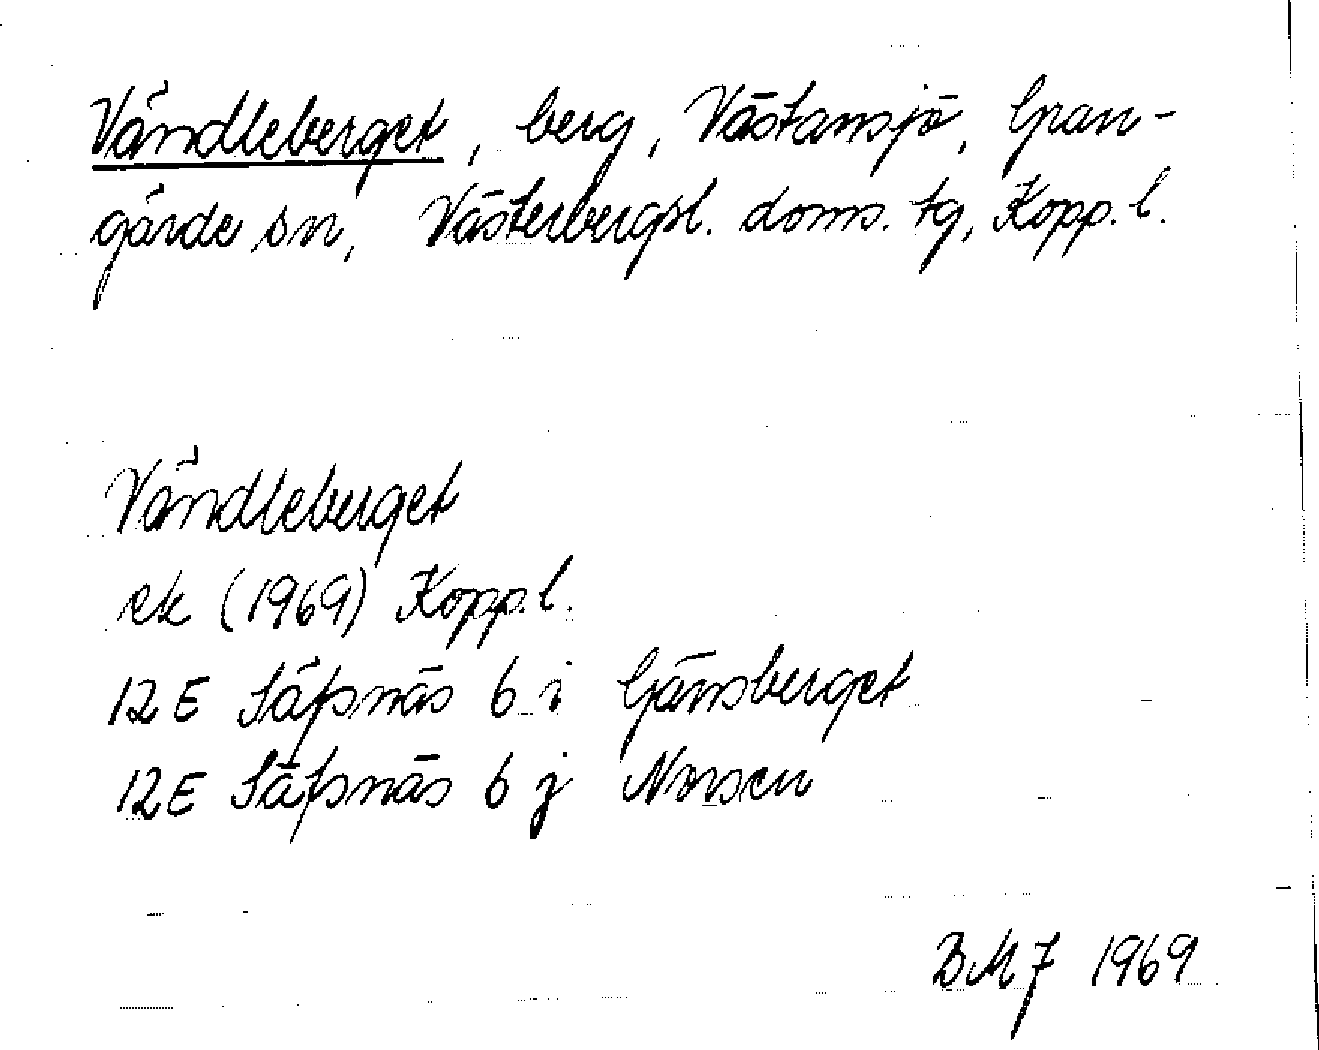 Våndleberget, berg, Västansjö, Gran-
gärde sn, Västerbergsl. doms. tg, Kopp. l.
Våndleberget
ek (1969) Kopp. l.
12E Säfsnäs 6 i Gänsberget
12E Säfsnäs 6 j Norsen
BMJ 1969